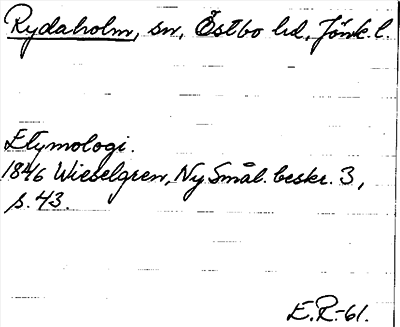 Rydaholm, sn, Östbo hd, Jönk. l.
Etymologi.
1846 Wieselgren, Ny Smål. beskr. 3,
s. 43.
E.R.-61.